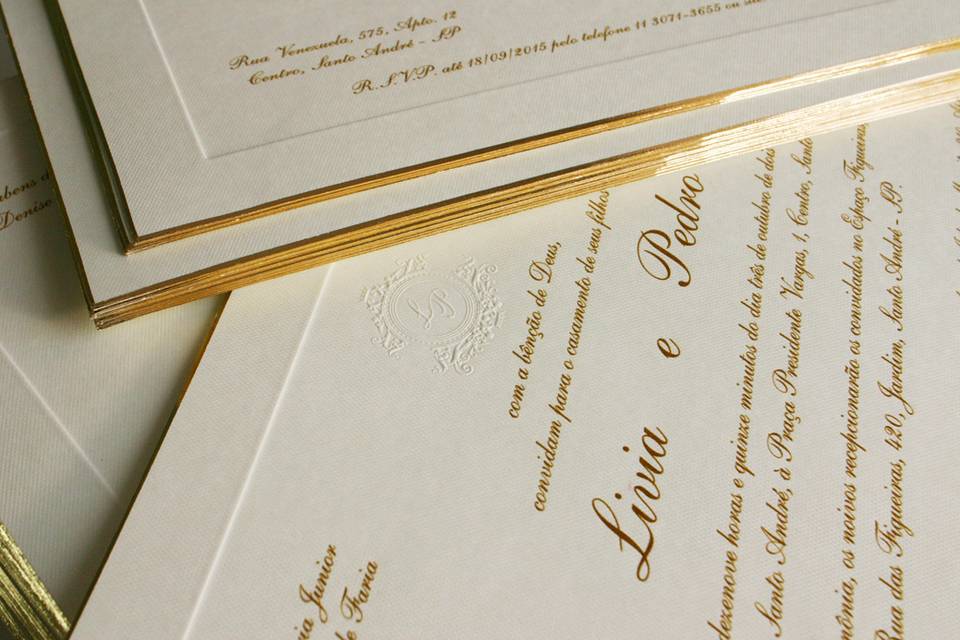 Rua Venezuela, 575, Apto. 12
Centro, Santo André - SP
R.S.V.P. até 18/09/2015 pelo telefone 11 3071-3655 ou
Denise
LP
Junior
Faria
com a bênção de Deus,
convidam para o casamento de seus filhos
Livia e Pedro
dezenove horas e quinze minutos do dia três de outubro de dois
Santo André, à Praça Presidente Vargas, 1, Centro, Santo
os noivos recepcionarão os convidados no Espaço Figueiras
Rua das Figueiras, 420, Jardim, Santo André - SP.